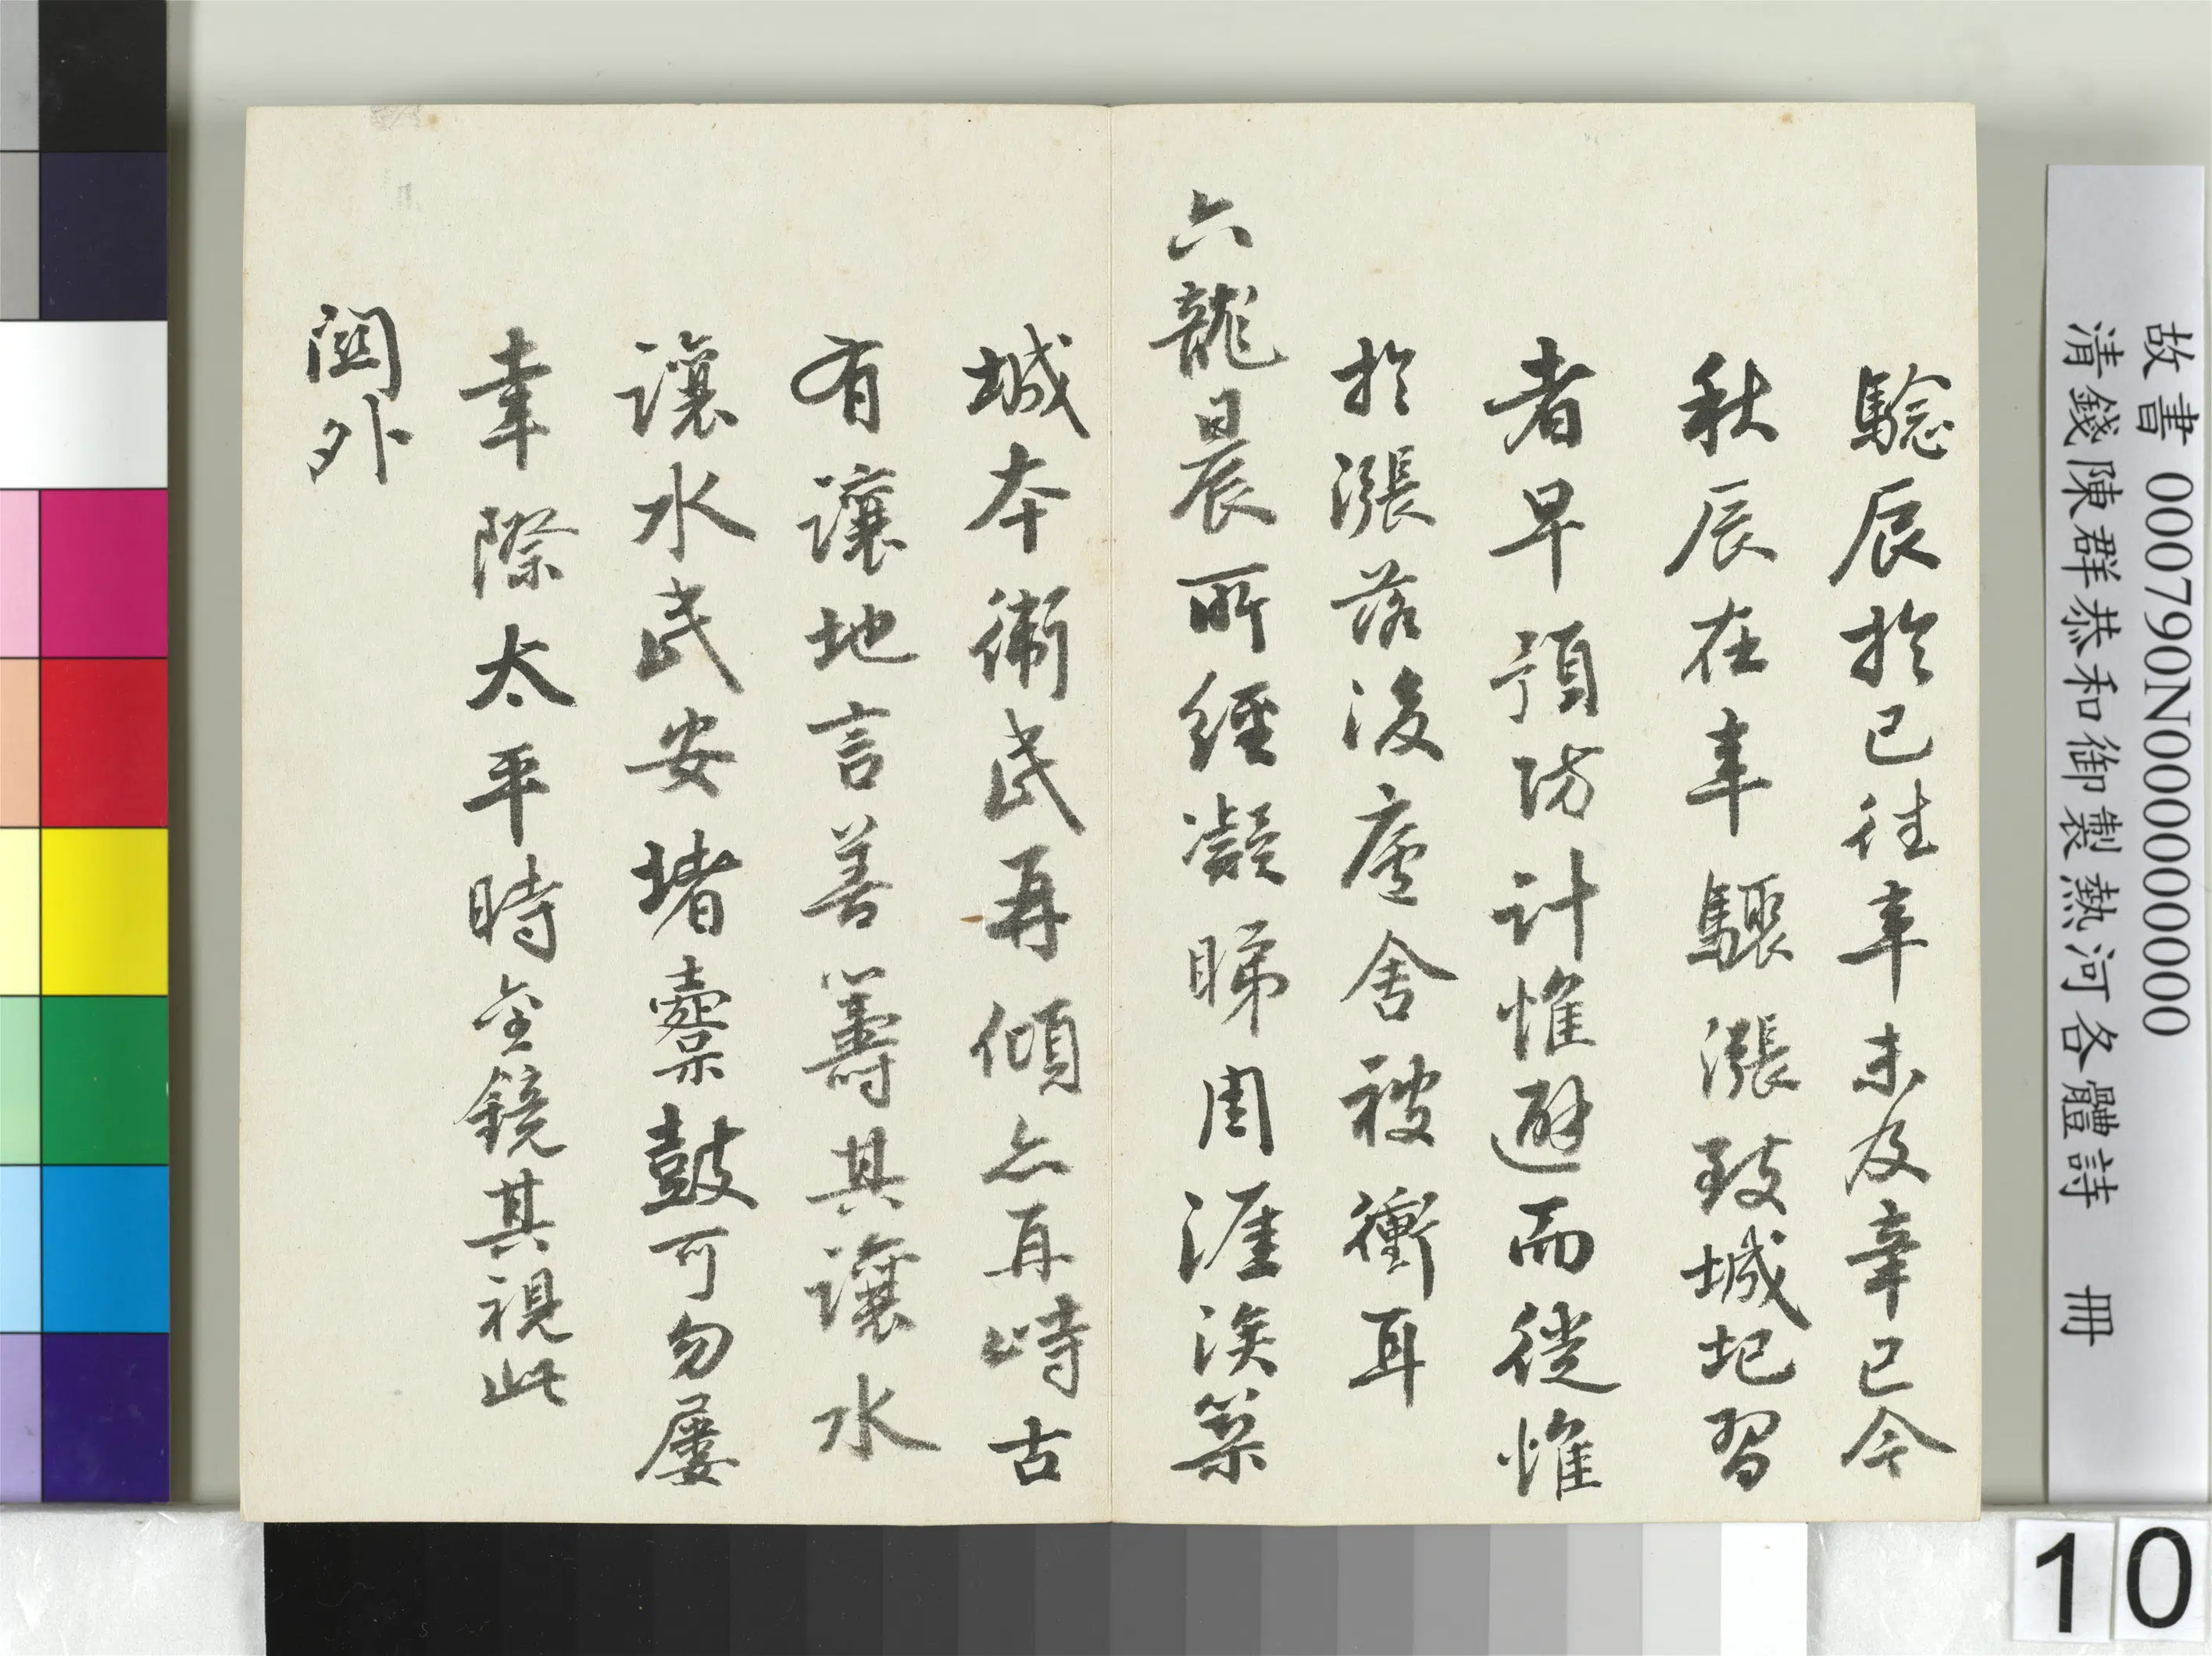 驗辰於已往年未及辛巳今
秋辰在辜驟漲致城圮習
者早預防計惟避而徙惟
於漲落後廬舍被衝耳
六龍日晨所經凝睇周涯涘築
城本衛民再傾亦再峙古
有讓地言善籌其讓水
讓水民安堵鼛鼓可勿屢
幸際太平時金鏡其視此
閫外
故書 000790N000000000
清錢陳群恭和御製熱河各體詩 冊
10